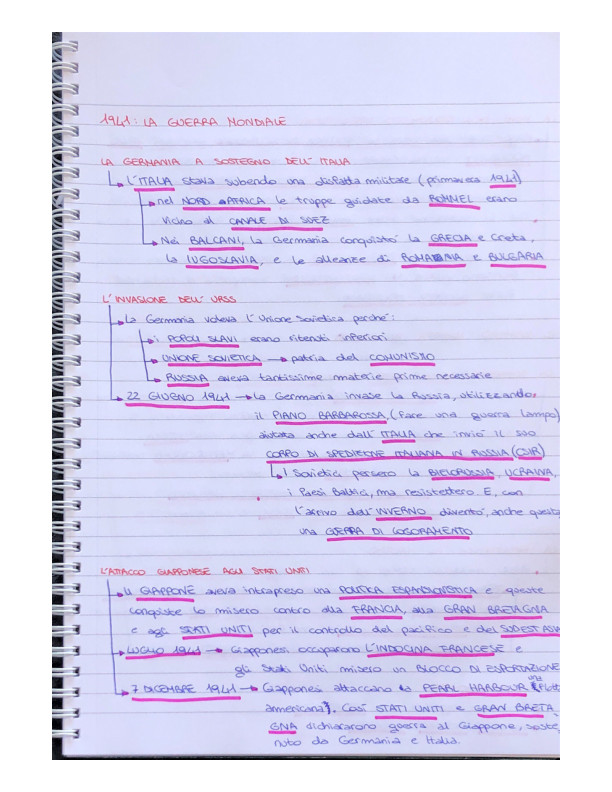 1941: LA GUERRA MONDIALE
LA GERMANIA A SOSTEGNO DELL'ITALIA
L'ITALIA stava subendo una disfatta militare (primavera 1941)
nel NORD AFRICA le truppe guidate da ROMMEL erano
vicino al CANALE DI SUEZ
Nei BALCANI, la Germania conquistò la GRECIA e Creta,
la IUGOSLAVIA, e le alleanze di ROMANIA e BULGARIA
L'INVASIONE DELL'URSS
La Germania voleva l'Unione Sovietica perchè:
i POPOLI SLAVI erano ritenuti inferiori
UNIONE SOVIETICA → patria del COMUNISMO
RUSSIA aveva tantissime materie prime necessarie
22 GIUGNO 1941 → La Germania invase la Russia, utilizzando
il PIANO BARBAROSSA, (fare una guerra lampo)
aiutata anche dall'ITALIA che inviò IL SUO
CORPO DI SPEDIZIONE ITALIANA IN RUSSIA (CSIR)
I Sovietici persero la BIELORUSSIA, UCRAINA,
i Paesi Baltici, ma resistettero. E, con
l'arrivo dell'INVERNO diventò, anche questa
una GUERRA DI LOGORAMENTO
L'ATTACCO GIAPPONESE AGLI STATI UNITI
IL GIAPPONE aveva intrapreso una POLITICA ESPANSIONISTICA e queste
conquiste lo misero contro alla FRANCIA, alla GRAN BRETAGNA
e agli STATI UNITI per il controllo del pacifico e del SUDEST ASIA
LUGLIO 1941 → Giapponesi occuparono L'INDOCINA FRANCESE e
gli Stati Uniti misero un BLOCCO DI ESPORTAZIONE
7 DICEMBRE 1941 → Giapponesi attaccano la PEARL HARBOUR (una Flott
americana). Così STATI UNITI e GRAN BRETA
GNA dichiararono guerra al Giappone, soste
nuto da Germania e Italia.